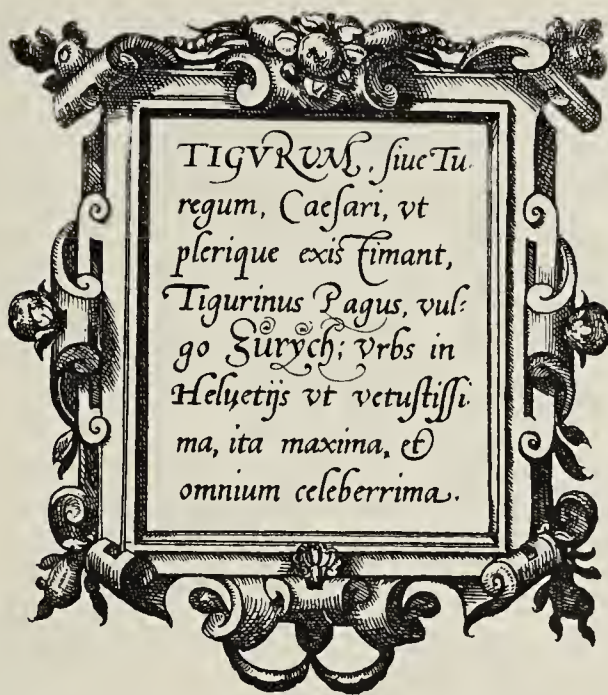 TIGVRVM, ſiue Tu
regum, Caeſari, vt
plerique existimant,
Tigurinus Pagus, vul⸗
go Zürych; Vrbs in
Heluetijs vt vetuſtiſſi
ma, ita maxima, et
omnium celeberrima.